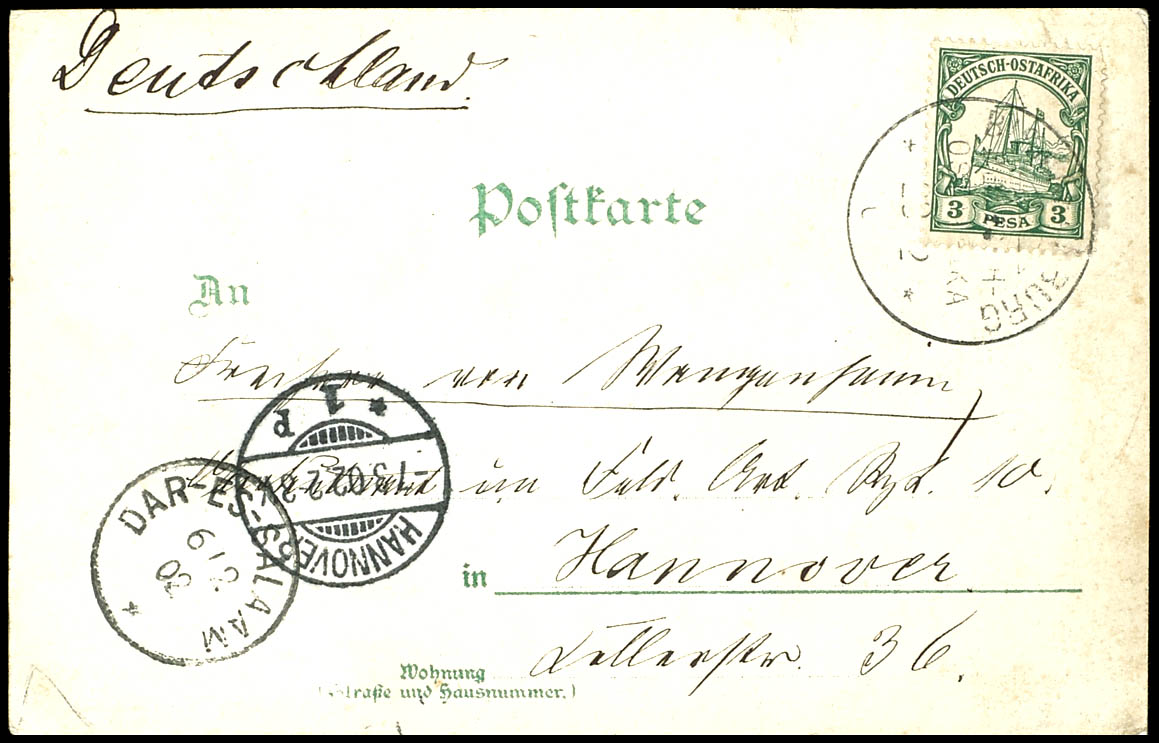 Deutschland.
DEUTSCH-OSTAFRIKA
3 PESA 3
Postkarte
An
Freiherr von Wangenheim,
im Feld. Art. Rgt. 10.
1 P
-7.3.02. 2-3
HANNOVER
DAR-ES-SALAAM
6/2
02
in Hannover
Cellerstr. 36.
Wohnung
(Straße und Hausnummer.)